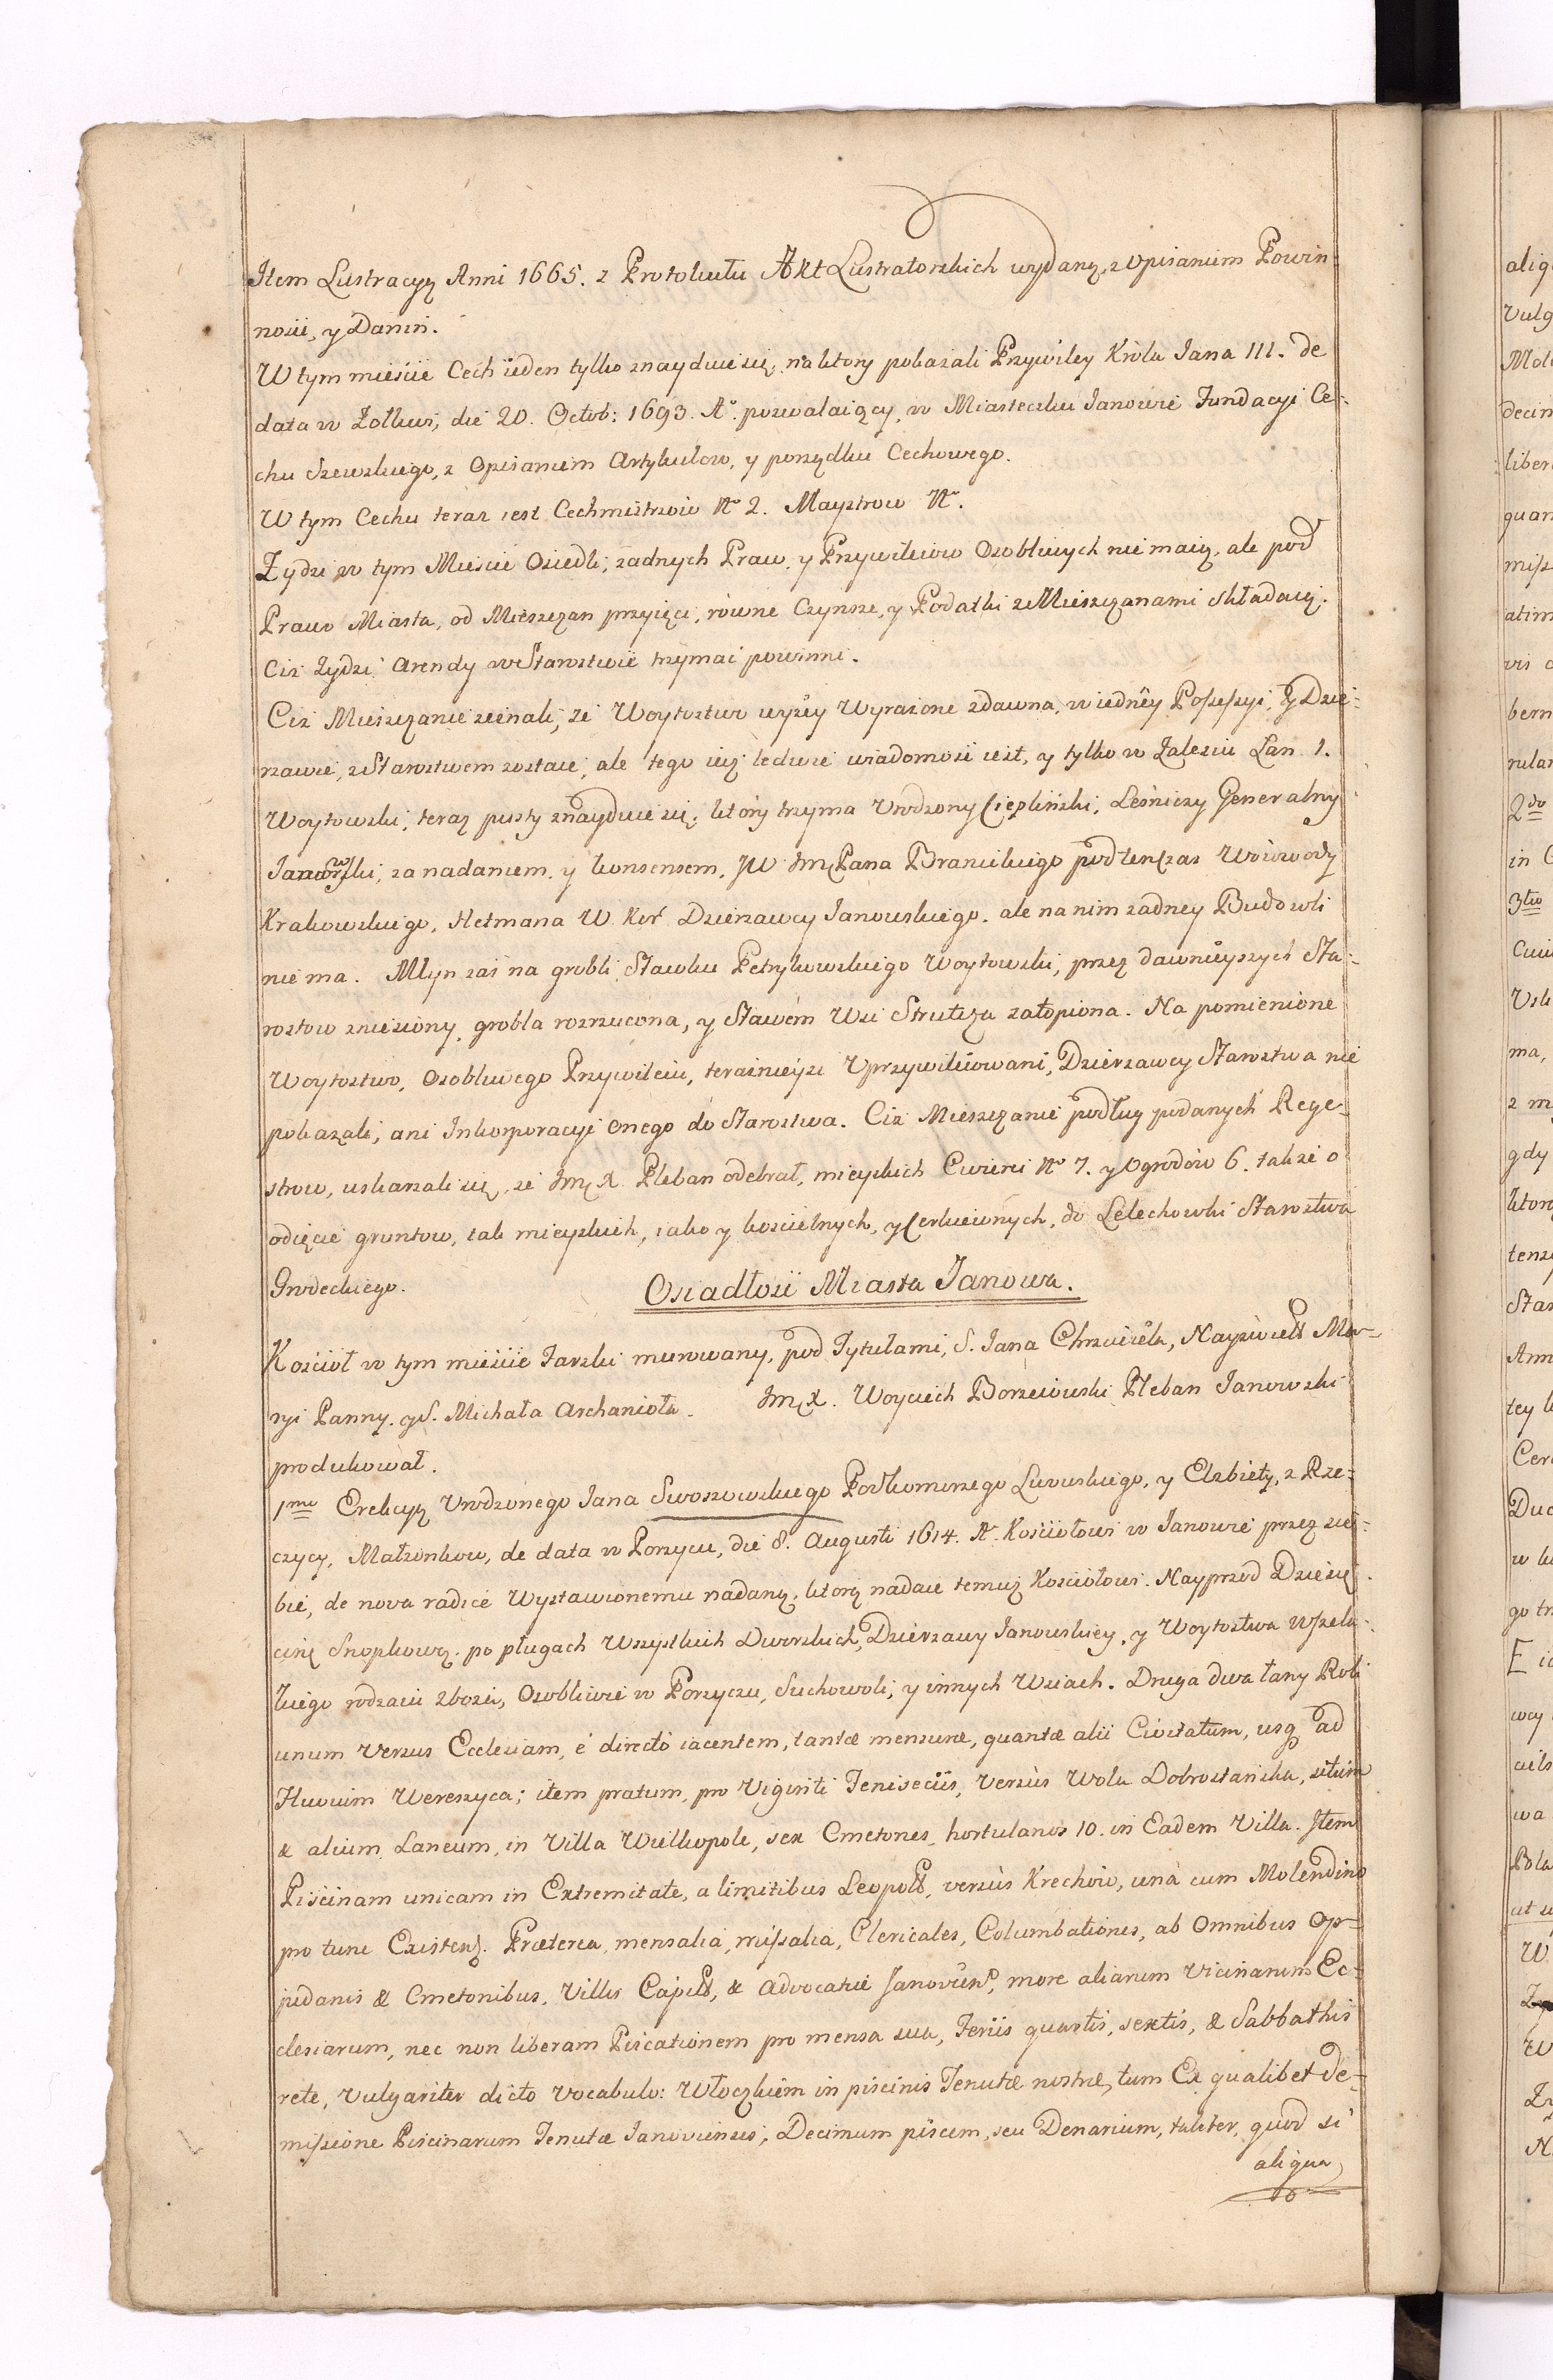 Item Lustracyą Anni 1665. z Protokułu Akt Lustratorskich wydaną, z Opisaniem Powin-
nosci, y Danin.
W tym miescie Cech ieden tylko znayduie się, na ktory pokazali Przywiley Króla Jana III. de
data w Zołkwi, die 20. Octob: 1693. Aº. pozwalaiący, w Miasteczku Janowie Fundacyi Ce-
chu Szewskiego, z Opisaniem Artykułow, y porządku Cechowego.
W tym Cechu teraz iest Cechmistrzów Nº 2. Maystrow Nº.
Zydzi w tym Miescie Osiedli, zadnych Praw, y Przywileiow Osobliwych nie maią, ale pod
Prawo Miasta, od Mieszczan przyięci, równe Czynsze, y Podatki z Mieszczanami składaią.
Ciz Zydzi Arendy w Starostwie trzymać powinni.
Ciz Mieszczanie zeznali, ze Woytostwo wyzey Wyrazone zdawna, w iedney Possessyi, y Dzie-
rzawie, z Starostwem zostaie, ale tego iuz ledwie wiadomosć iest, y tylko w Zalesiu Łan 1.
Woytowski, teraz pusty znayduie się, ktory trzyma Urodzony Cieplinski, Leśniczy Generalny
Janowski, za nadaniem, y konsensem, JW JmPana Branickiego pod tenczas Woiewody
Krakowskiego, Hetmana W. Kor. Dzierzawcy Janowskiego. ale na nim zadney Budowli
nie ma. Młyn zaś na grobli Stawku Petrykowskiego Woytowski, przez dawnieyszych Sta-
rostow zniesiony, grobla rozrzucona, y Stawem Wsi Strutcza zatopiona. Na pomienione
Woytostwo, Osobliwego Przywileiu, teraznieysi Uprzywileiowani, Dzierzawcy Starostwa nie
pokazali, ani Inkorporacyi onego do Starostwa. Ciz Mieszczanie podług podanych Rege-
strow, uskarzali się, ze Jm X. Pleban odebrał, mieyskich Cwierci Nº 7. y Ogrodów 6. takze o
odięcie gruntow, tak mieyskich, iako y koscielnych, y Cerkiewnych, do Lelechowki Starostwa
Grodeckiego.
Osiadłosć Miasta Janowa.
Kosciół w tym miescie Farski murowany, pod Tytułami, S. Jana Chrzciciela, Nayswięt: Ma-
ryi Panny, y S. Michała Archanioła. Jm X. Woyciech Borzewski Pleban Janowski
produkował.
1mo Erekcyą Urodzonego Jana Swoszowskiego Podkomorzego Lwowskiego, y Elzbiety, z Rze-
czycy, Małzonkow, de data w Porzyczu, die 8. Augusti 1614. Aº. Kosciołowi w Janowie przez sie-
bie, de nova radice Wystawionemu nadaną, ktorą nadaie temuz Kosciołowi. Nayprzod Dziesię-
cinę Snopkową, po pługach Wszystkich Dworskich, Dzierzawy Janowskiey, y Woytostwa wszela-
kiego rodzaiu zbozsa, Osobliwie w Porzyczu, Suchowoli, y innych Wsiach. Druga dwa łany Roli
unum versus Ecclesiam, é directo iacentem, tantæ mensuræ, quantæ alii Civitatum, usq ad
Fluvium Wereszyca; item pratum, pro Viginti Feniseciis, versùs Wola Dobrostanska, situm
& alium Laneum, in Villa Wielkopole, sex Cmetones, hortulanos 10. in Eadem Villa. Item
Piscinam unicam in Extremitate, a limitibus Leopold, versùs Krechów, unà cum Molendino
pro tunc Existend. Præterea, mensalia, missalia, Clericales, Columbationes, ab Omnibus Op-
pidanis & Cmetonibus, Villis Capit, & Advocatiæ Janoviens, more aliarum Vicinarum Ec-
clesiarum, nec non liberam Piscationem pro mensa sua, Feriis quartis, sextis, & Sabbathis
rete, vulgariter dicto vocabulo: Włoczkiem in piscinis Tenutæ nostræ, tum Ex qualibet de-
missione Piscinarum Tenutæ Janoviensis, Decimum piscem, seu Denarium, taliter, quod si
aliqua